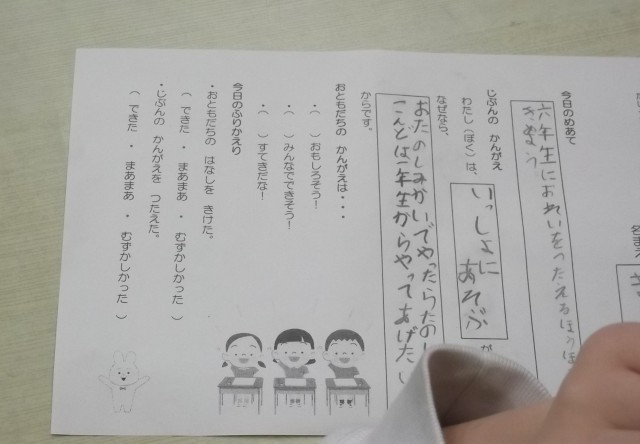 名まえ
今日のめあて
六年生におれいをつたえるほうほ
きめよう
じぶんの かんがえ
わたし(ぼく)は、
いっしょに
あそぶ
が
なぜなら、
おたのしみかいでやったらたのし
こんどは一年生からやってあげたい
からです。
おともだちの かんがえは・・・
・( )おもしろそう!
・( )みんなでできそう!
・( )すてきだな!
今日のふりかえり
・おともだちの はなしを きけた。
( できた ・ まあまあ ・ むずかしかった )
・じぶんの かんがえを つたえた。
( できた ・ まあまあ ・ むずかしかった )